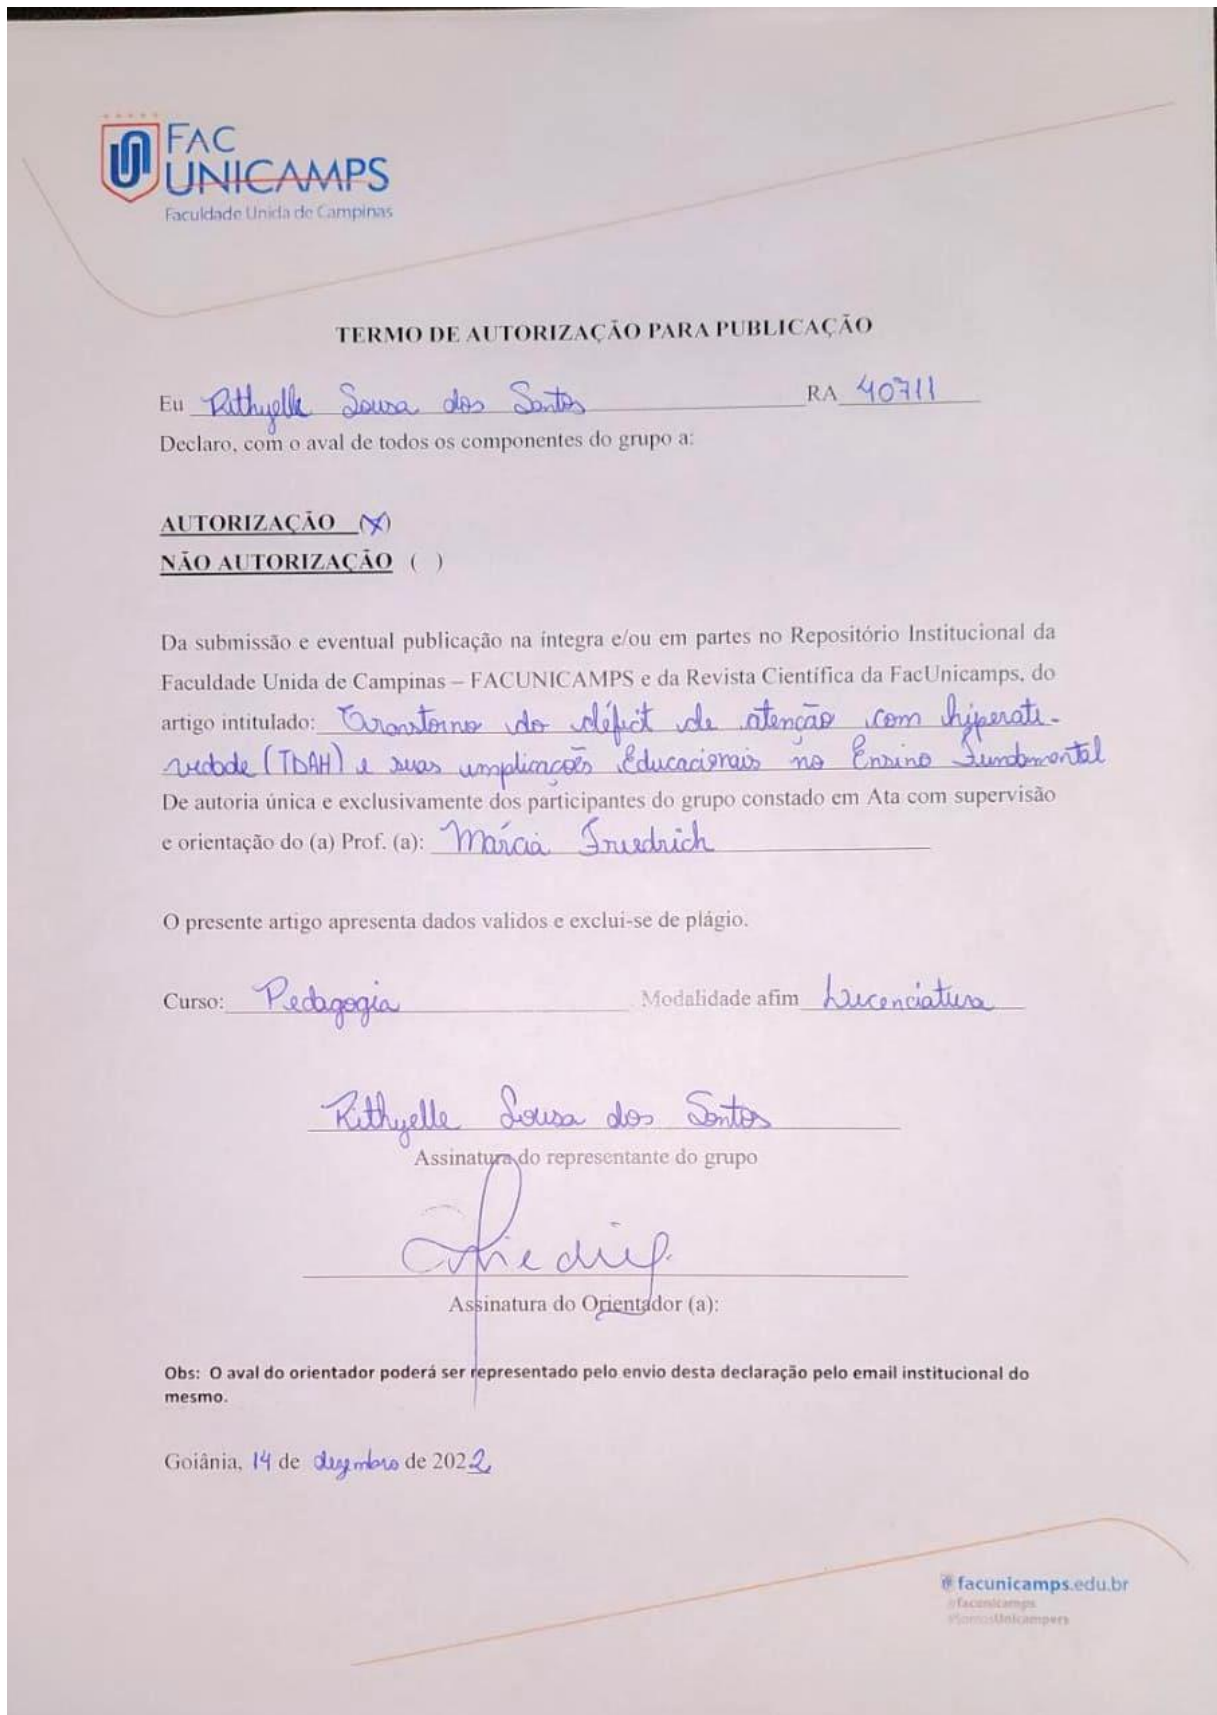 FAC
UNICAMPS
Faculdade Unida de Campinas
TERMO DE AUTORIZAÇÃO PARA PUBLICAÇÃO
Eu Rithyelle Sousa dos Santos RA 40711
Declaro, com o aval de todos os componentes do grupo a:
AUTORIZAÇÃO (X)
NÃO AUTORIZAÇÃO ( )
Da submissão e eventual publicação na íntegra e/ou em partes no Repositório Institucional da
Faculdade Unida de Campinas – FACUNICAMPS e da Revista Científica da FacUnicamps, do
artigo intitulado: Transtorno do déficit de atenção com hiperati-
vidade (TDAH) e suas implicações Educacionais no Ensino Fundamental
De autoria única e exclusivamente dos participantes do grupo constado em Ata com supervisão
e orientação do (a) Prof. (a): Márcia Friedrich
O presente artigo apresenta dados validos e exclui-se de plágio.
Curso: Pedagogia Modalidade afim Licenciatura
Rithyelle Sousa dos Santos
Assinatura do representante do grupo
Assinatura do Orientador (a):
Obs: O aval do orientador poderá ser representado pelo envio desta declaração pelo email institucional do
mesmo.
Goiânia, 14 de dezembro de 2022
facunicamps.edu.br
@facunicamps
#SomosUnicampers